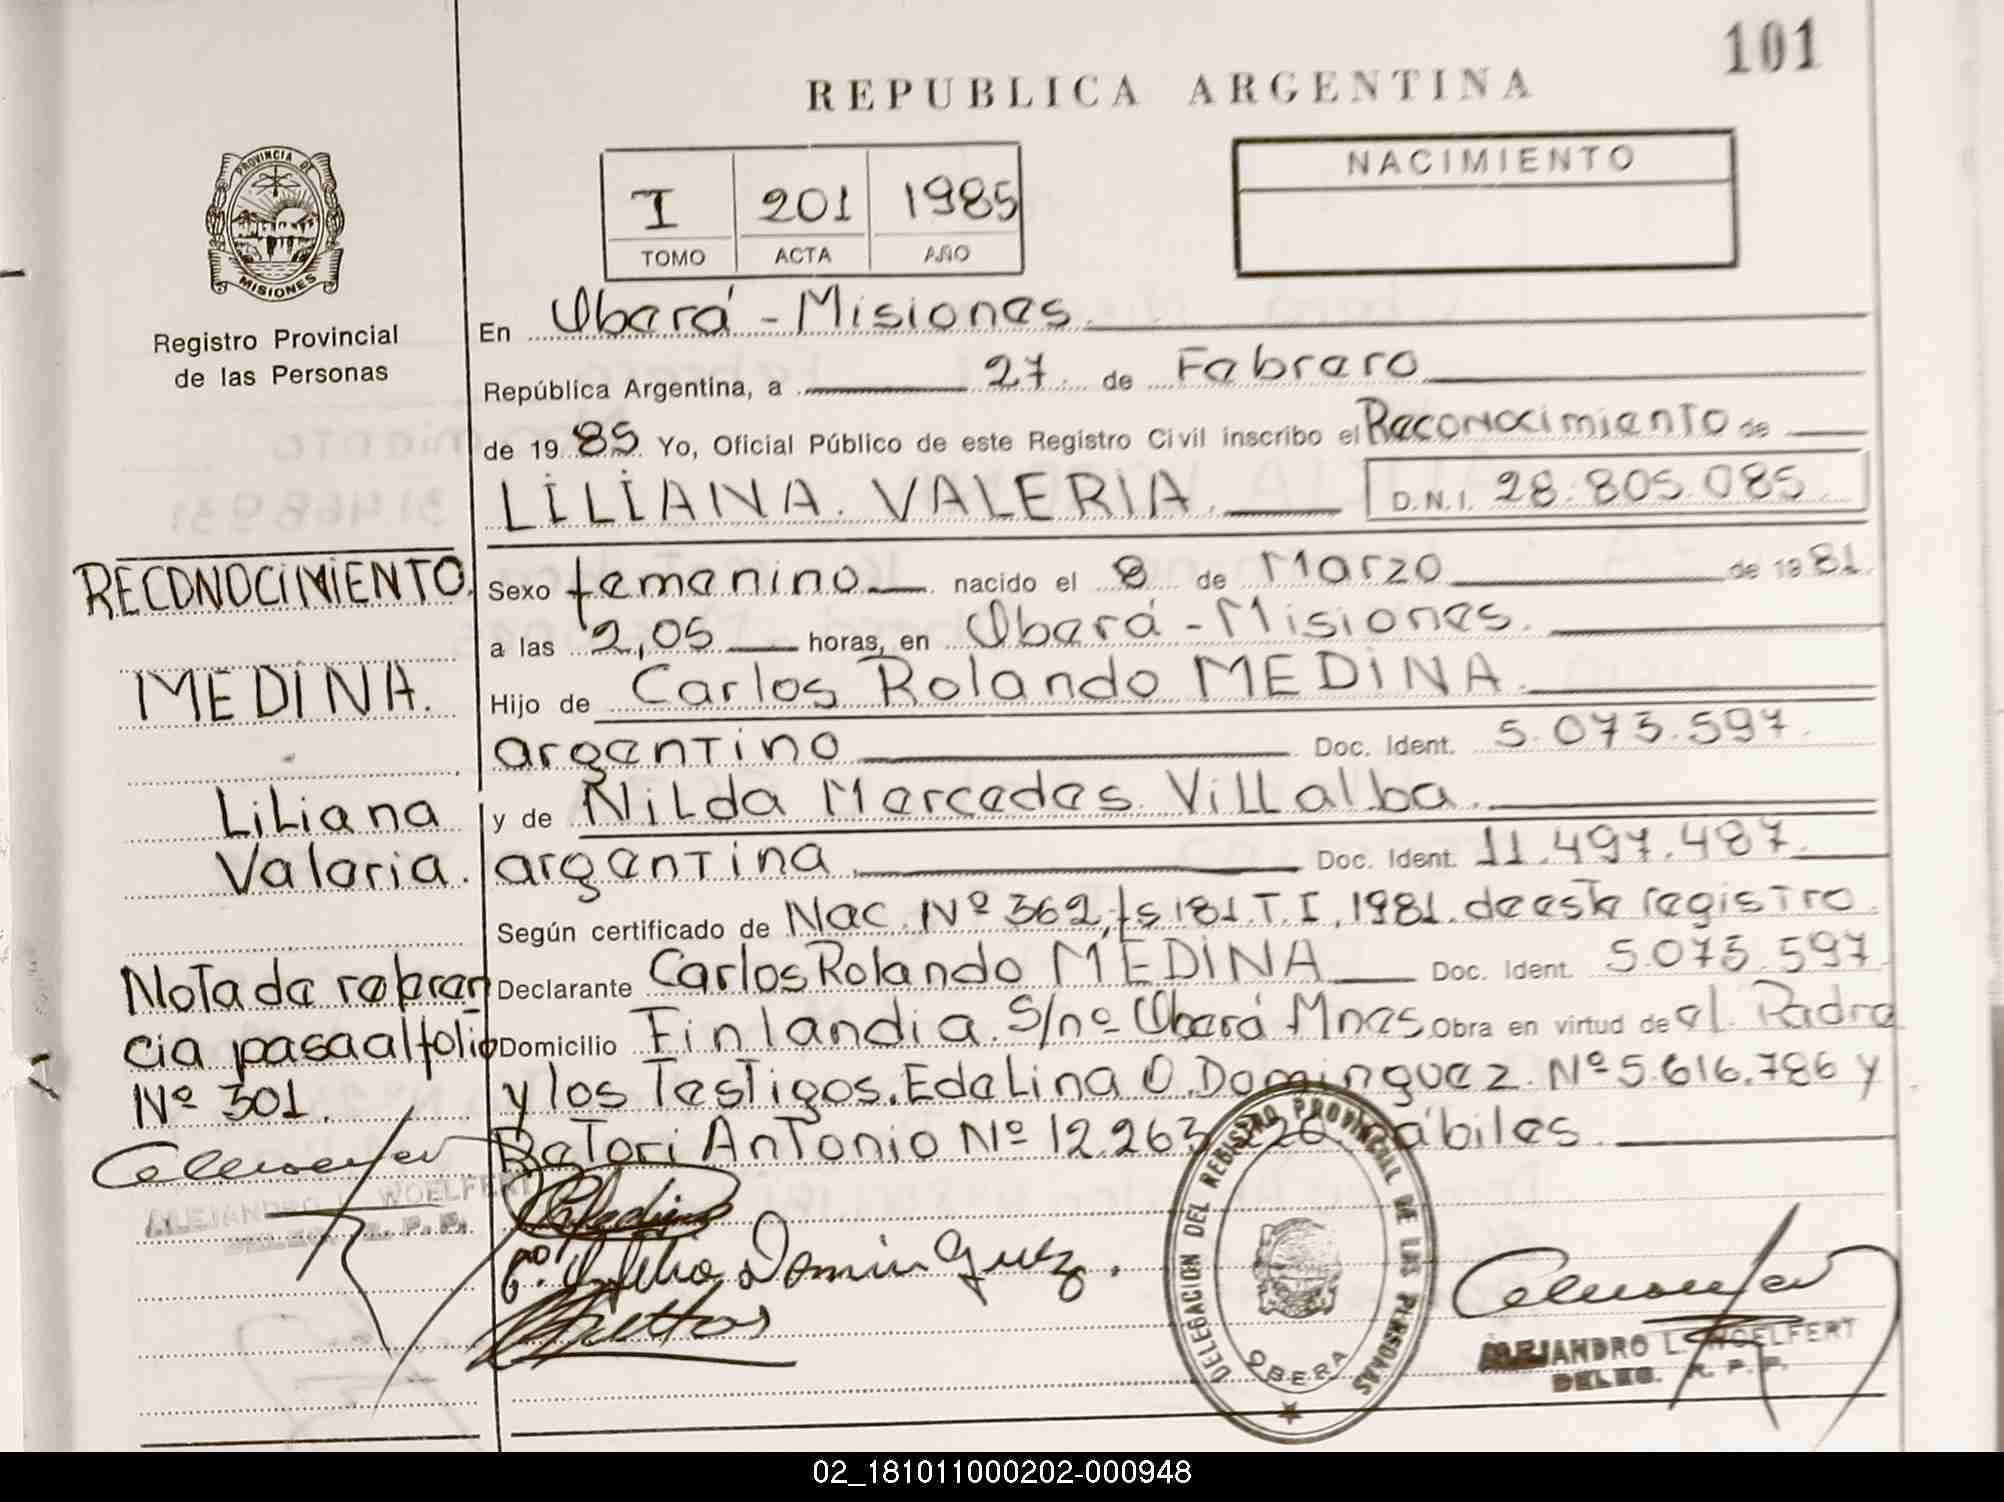 101
REPUBLICA ARGENTINA
PROVINCIA DE
MISIONES
Registro Provincial
de las Personas
I 201 1985
TOMO ACTA AÑO
NACIMIENTO
En Oberá - Misiones.
República Argentina, a 27 de Febrero
de 19 85 Yo, Oficial Público de este Registro Civil inscribo el Reconocimiento de
LILIANA. VALERIA. D.N.I. 28.805.085
RECONOCIMIENTO.
MEDINA.
Liliana
Valeria.
Sexo femenino nacido el 8 de Marzo de 1981.
a las 2,05 horas, en Oberá - Misiones.
Hijo de Carlos Rolando MEDINA.
argentino Doc. Ident. 5.073.597.
y de Nilda Mercedes Villalba.
argentina Doc. Ident. 11.497.487.
Según certificado de Nac. Nº 362, fs 181. T. I, 1981. de este registro.
Declarante Carlos Rolando MEDINA Doc. Ident. 5.073.597
Domicilio Finlandia. S/nº Oberá Mnes Obra en virtud de el. Padre
y los Testigos. Edelina O. Dominguez. Nº 5.616.786 y
Batori Antonio Nº 12.263.226 hábiles.
Nota de referen
cia pasa al folio
Nº 301.
ALEJANDRO L. WOELFERT
DELEG. R. P. P.
Dominguez.
DELEGACION DEL REGISTRO PROVINCIAL DE LAS PERSONAS
OBERA
ALEJANDRO L. WOELFERT
DELEG. R. P. P.
02_181011000202-000948